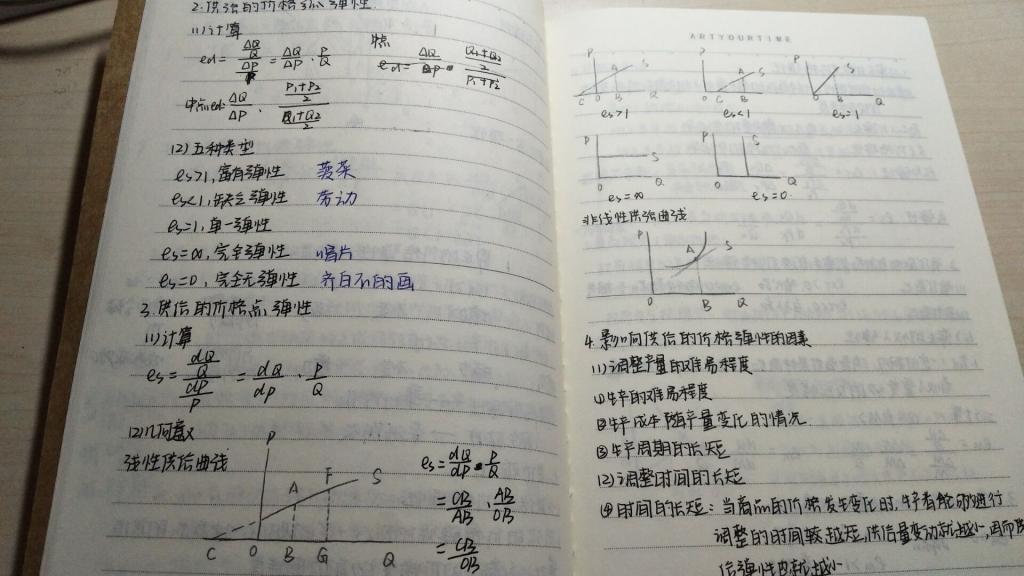 2.供给的价格弧弹性
(1)计算
ed = (ΔQ/Q)/(ΔP/P) = ΔQ/ΔP · P/Q
ed = ΔQ/ΔP · ((Q1+Q2)/2)/(P1+P2)
中点ed: ΔQ/ΔP · ((P1+P2)/2)/((Q1+Q2)/2)
(2)五种类型
es>1,富有弹性 菠菜
es<1,缺乏弹性 劳动
es=1,单一弹性
es=∞,完全弹性 唱片
es=0,完全无弹性 齐白石的画
3.供给的价格点弹性
(1)计算
es = (dQ/Q)/(dP/P) = dQ/dP · P/Q
(2)几何意义
线性供给曲线
P A F S
C O B G Q
es = dQ/dP · P/Q
= CB/AB · AB/OB
= CB/OB
ARTYOURTIME
P A S C O B Q
es>1
P A S O C B Q
es<1
P S O B Q
es=1
P S O Q
es=∞
P S O Q
es=0
非线性供给曲线
P A S
O B Q
4.影响供给的价格弹性的因素
(1)调整产量的难易程度
①生产的难易程度
②生产成本随产量变化的情况
③生产周期的长短
(2)调整时间的长短
④时间的长短:当商品的价格发生变化时,生产者能够进行
调整的时间较越短,供给量变动就越小,因而供
给弹性也就越小